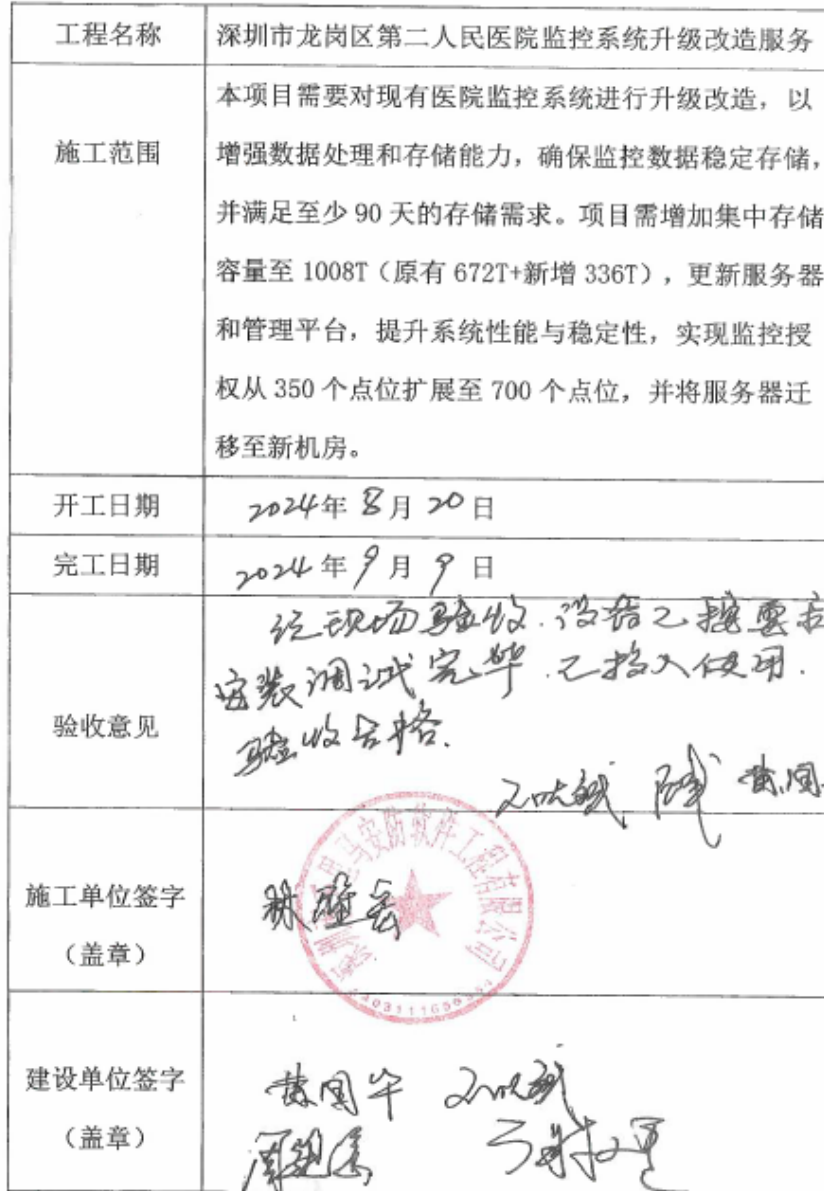 工程名称
深圳市龙岗区第二人民医院监控系统升级改造服务
施工范围
本项目需要对现有医院监控系统进行升级改造，以
增强数据处理和存储能力，确保监控数据稳定存储，
并满足至少 90 天的存储需求。项目需增加集中存储
容量至 1008T（原有 672T+新增 336T），更新服务器
和管理平台，提升系统性能与稳定性，实现监控授
权从 350 个点位扩展至 700 个点位，并将服务器迁
移至新机房。
开工日期
2024年 8月 20日
完工日期
2024年 9月 9日
验收意见
经现场验收.设备已按要求
安装调试完毕.已投入使用.
验收合格.
黄国
施工单位签字
（盖章）
马安防软件工程有限公司
建设单位签字
（盖章）
黄国华